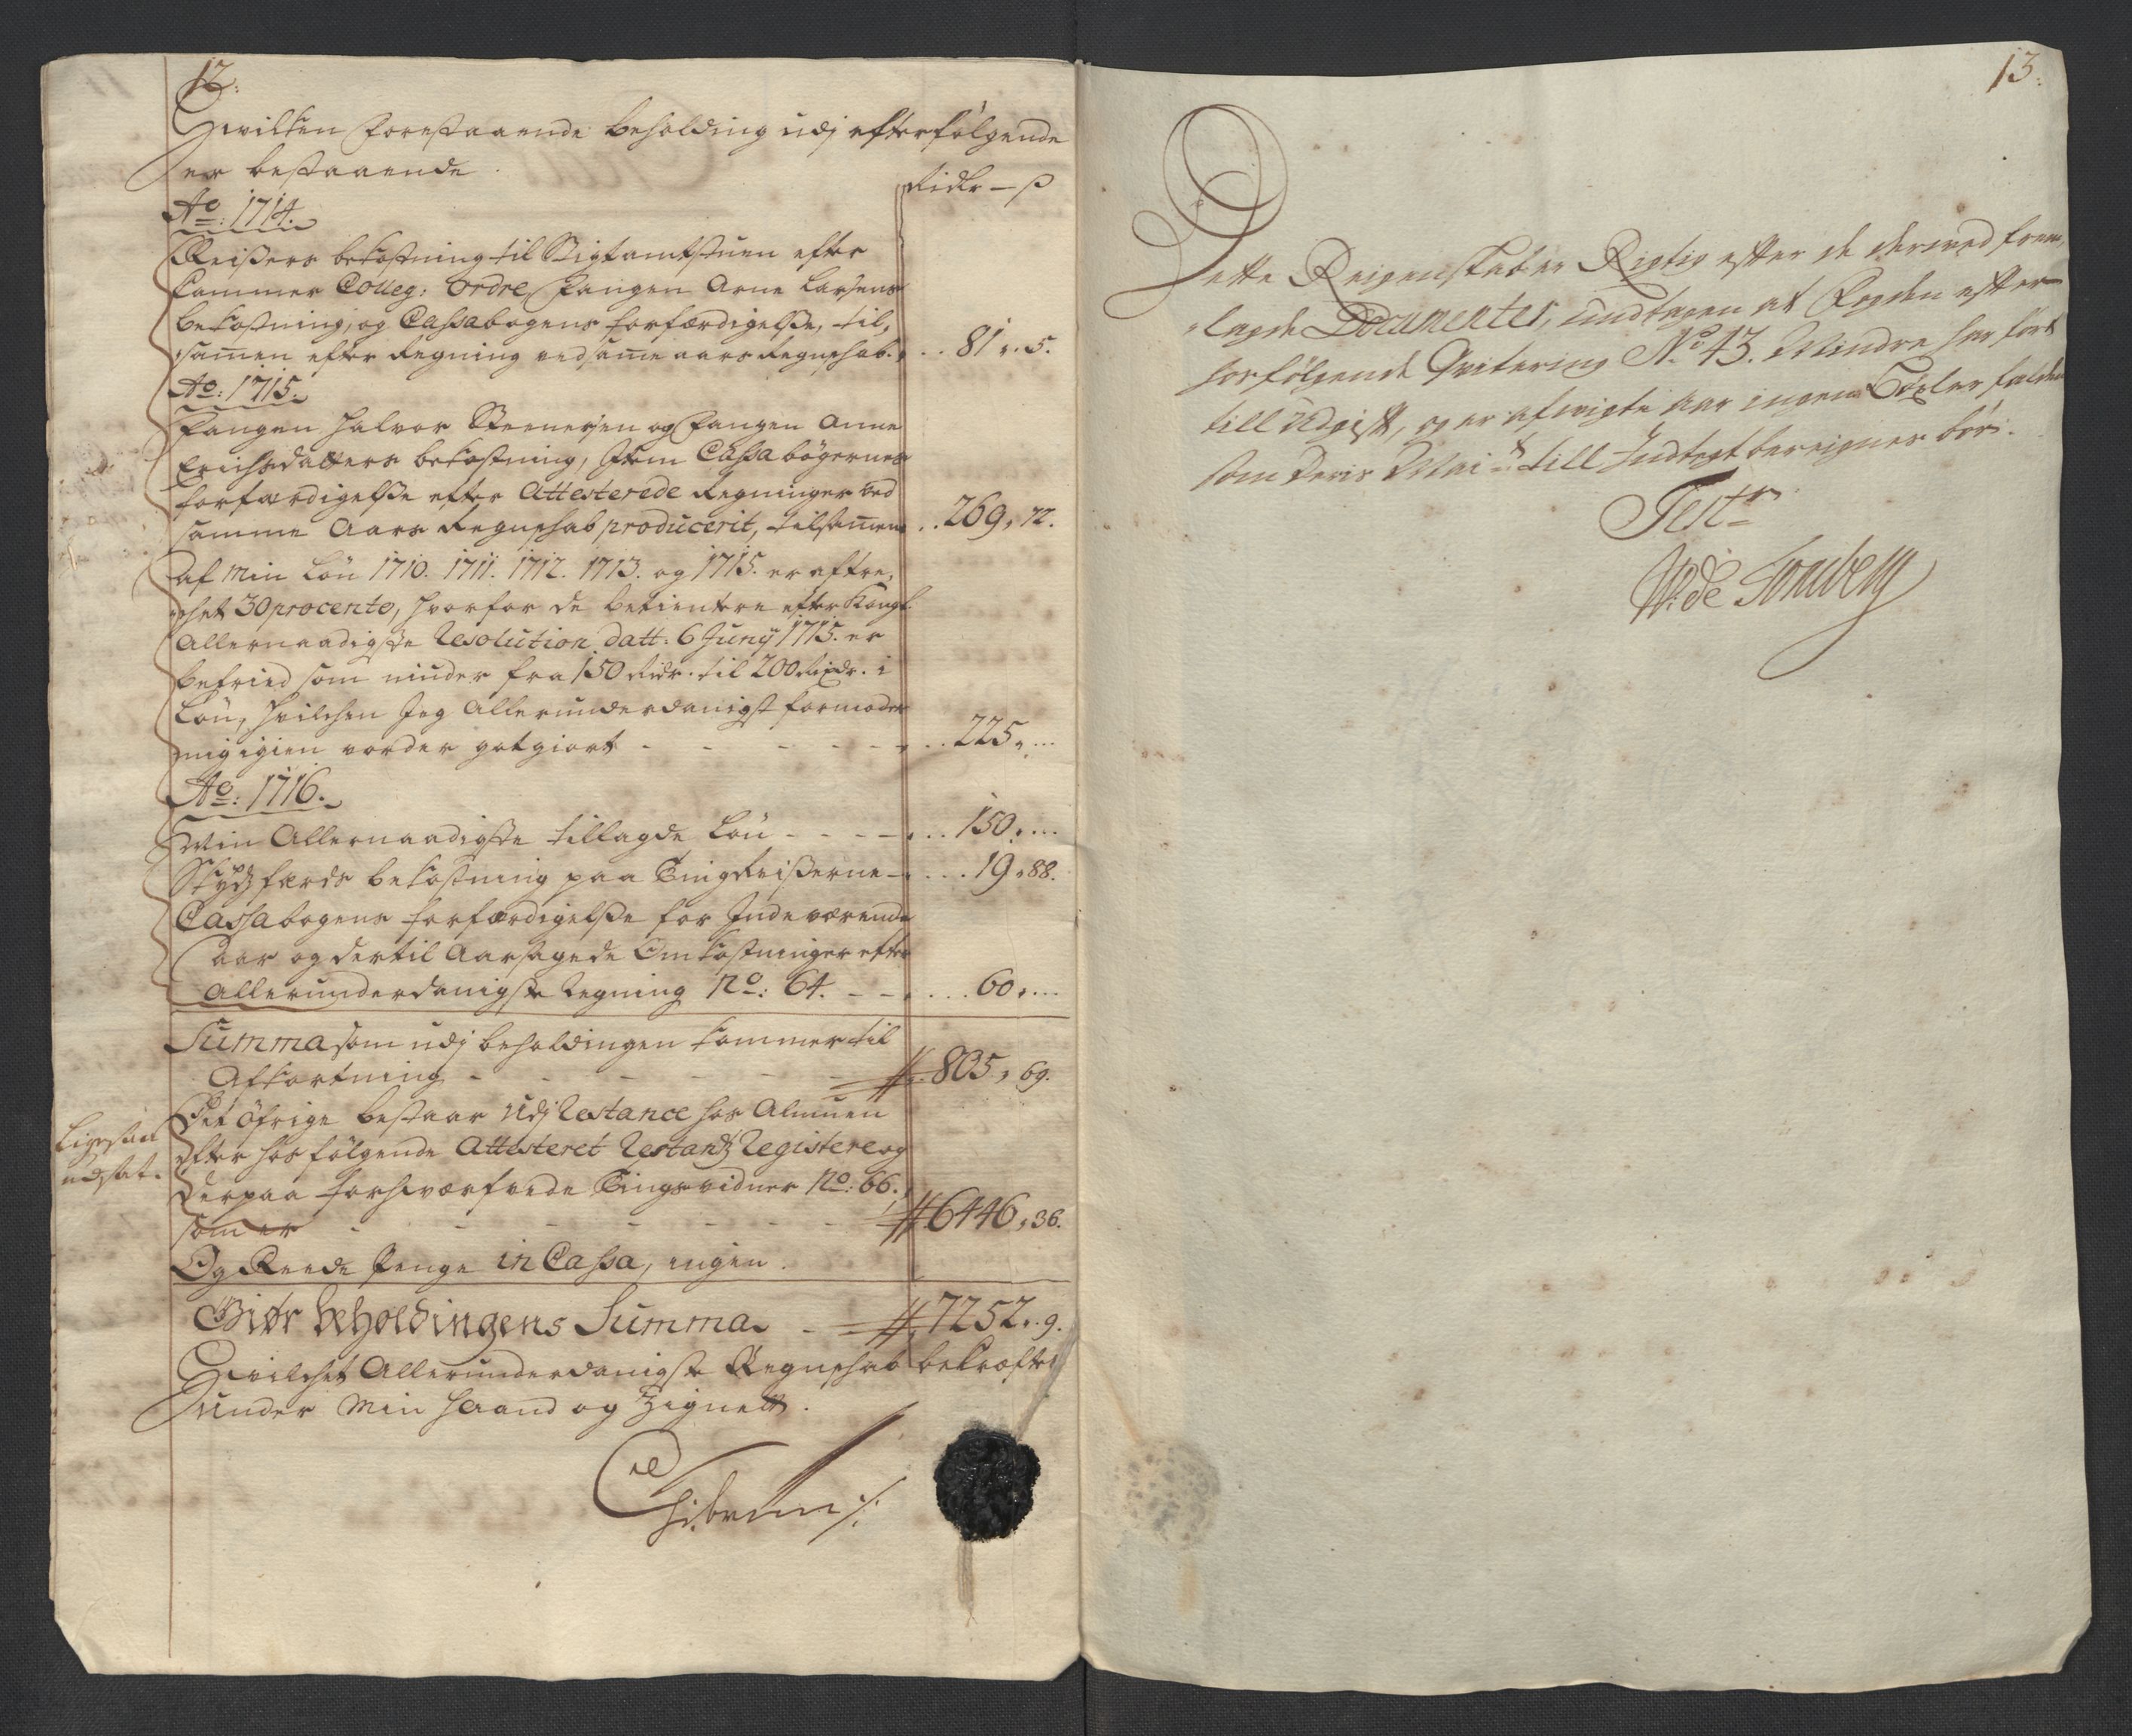 12:
Hvilken forestaaende beholding udj efterfølgende
er bestaaende.
Ridlr – ß
Ao: 1714.
Reisers bekostning til Stigtamtstuen efter
Cammer Colleg: Ordre, fangen Arne Larsens
bekostning, og Cassabogens forfærdigelsse, til,
samen efter Regning ved same aars Regnschab. .. 81 ,, 5.
Ao: 1715.
Fangen Halvor Steenersen og fangen Anne
Erichsdatters bekostning, Item Cassabögernes
forfærdigelsse efter Attesterede Regninger ved
samme Aars Regnschab producerit, tilsamen .. 269, 72.
af min Løn 1710. 1711. 1712. 1713. og 1715. er aftre,
chet 30 procento, hvorfor de betientere efter Kongl.
Allernaadigste Resolution datt: 6 Junij 1715. er
befried som niuder fra 150 Ridr. til 200 Rixdr. i
Løn, hvilchen Jeg Allerunderdanigst formoder
mig igien vorder gotgiort - - - - - .. 225, ...
Ao: 1716.
Min Allernaadigste tillagde Løn - - - - ... 150, ...
Skydtzfærds bekostning paa Tingreisserne - ... 19, 88.
Cassabogens forfærdigelsse for Indeværende
aar og dertil Aarsagede Omkostninger efter
allerunderdanigste Regning No: 64. - - ... 60, ...
Summa som udj beholdingen kommer til
Afkortning - - - - - 805, 69.
Det öfrige bestaar Udj Restance hos Almuen
efter hosfölgende Attesteret Restantz Registere og
derpaa forhværfvede Tingsvidner No: 66.
som er - - - - - - 6446, 36.
Ligesaa
udsat.
Og Reede penge in Cassa, ingen.
Giör beholdingens Summa - 7252, 9.
Hvilchet Allerunderdanigste Regnschab bekræftes
under Min Haand og Zignett.
13:
Dette Reigenskab er Rigtig efter de derved frem,
lagde Documenter, undtagen at Fogden efter
hosfölgende Qvitering No 43. Mindre har fört
till Udgift, og er afvigte aar ingen falden
som Deris Mait till Indtegt bereignes bör.
Testr
W: de Tonsberg